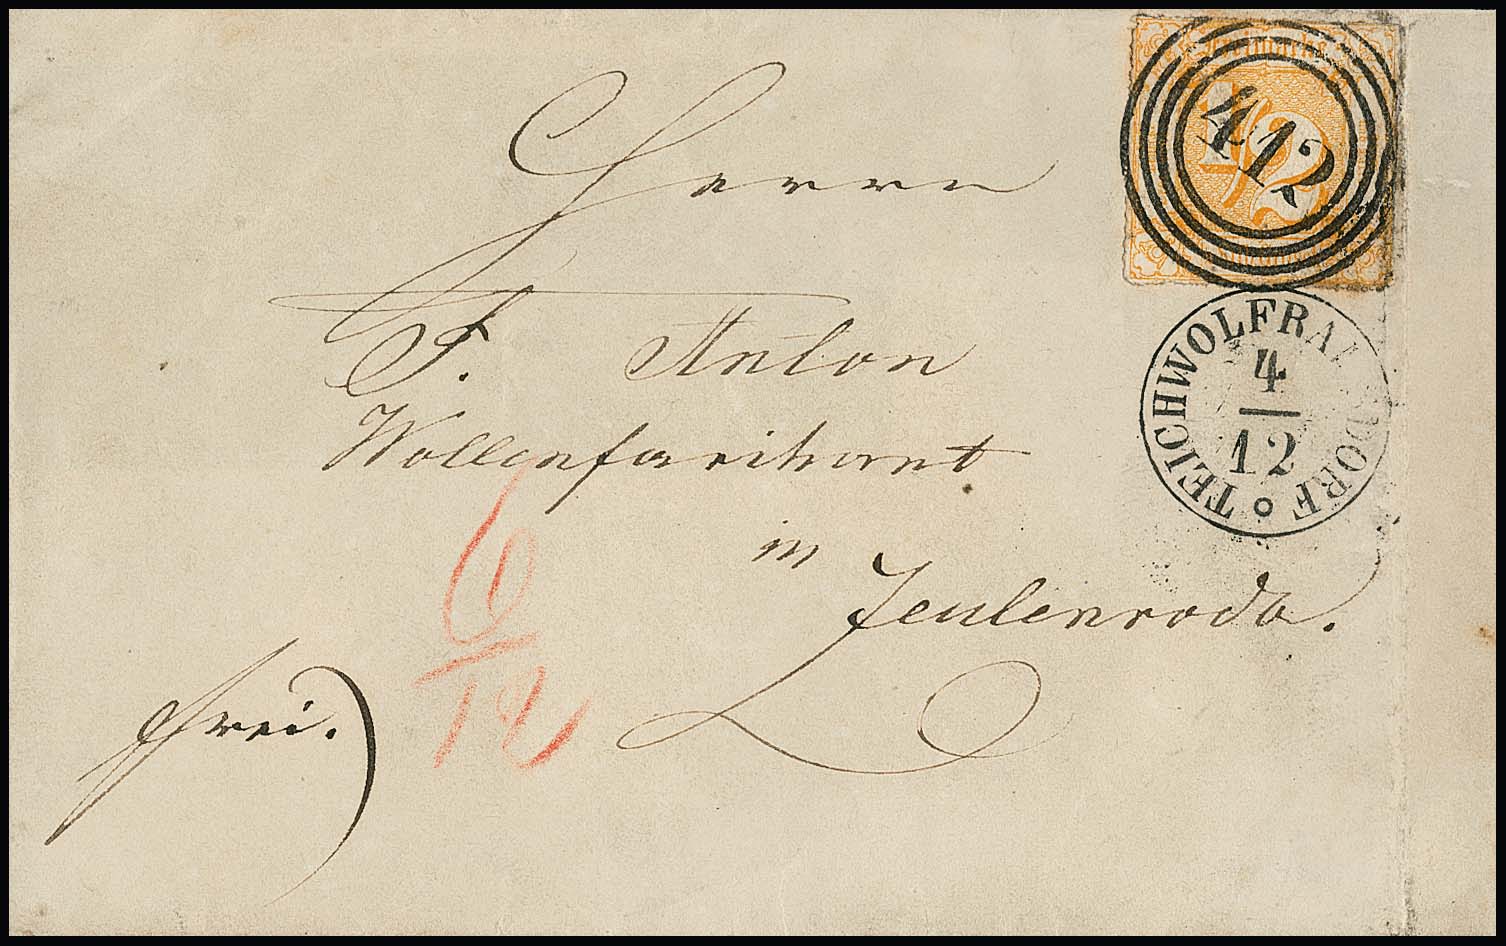 Freimarke
1/2
412
TEICHWOLFRAMSDORF
4
12
Herrn
F. Anton
Wollenfabrikant
in
Zeulenroda.
frei.
6
12